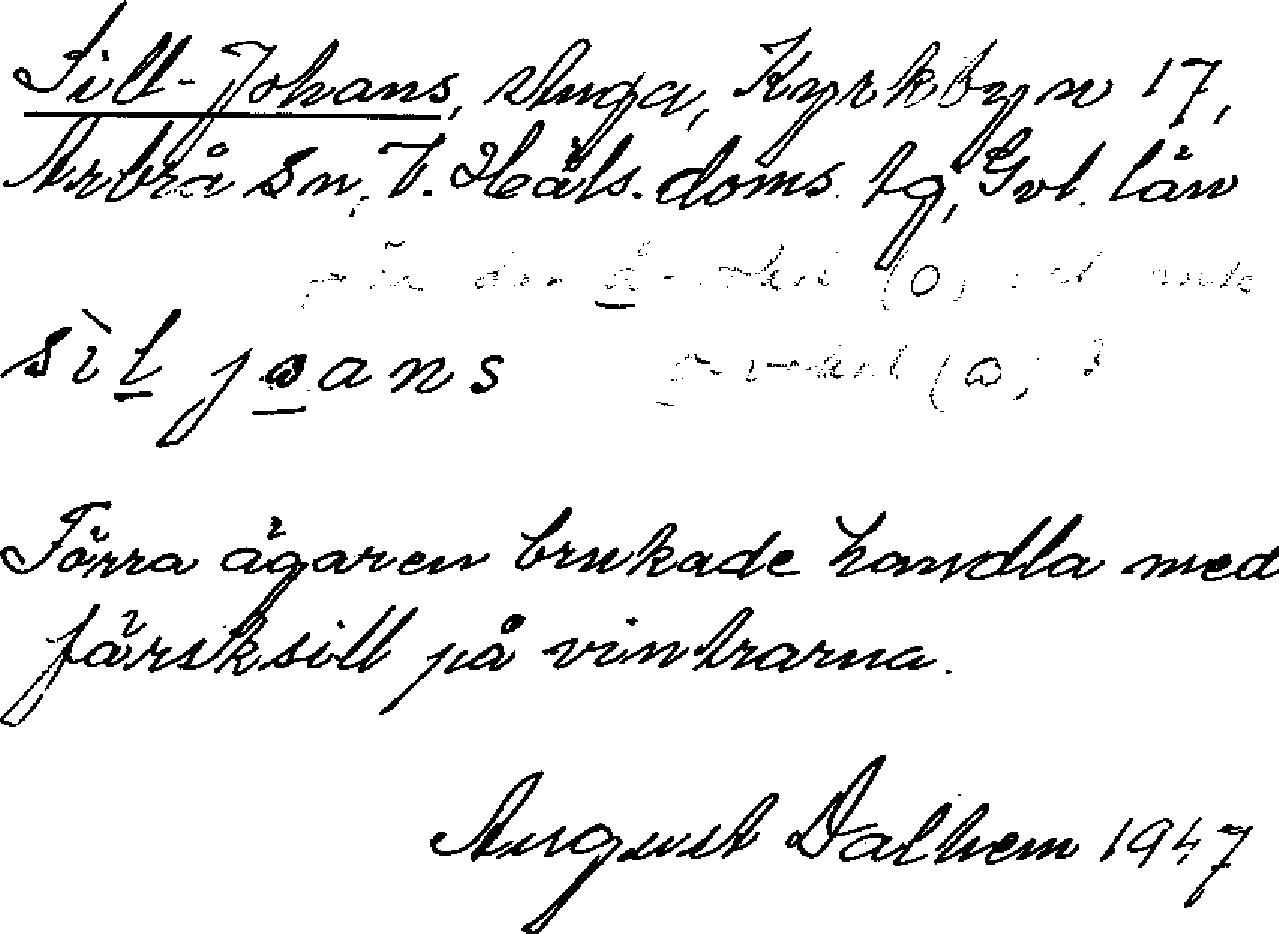 Sill-Johans, stuga, Kyrkbyn 17,
Arbrå sn, V. Häls. doms. tg, Gvl. län
den å- (o,
sìl joans (o,
Förra ägaren brukade handla med
färsksill på vintrarna.
August Dalhem 1947